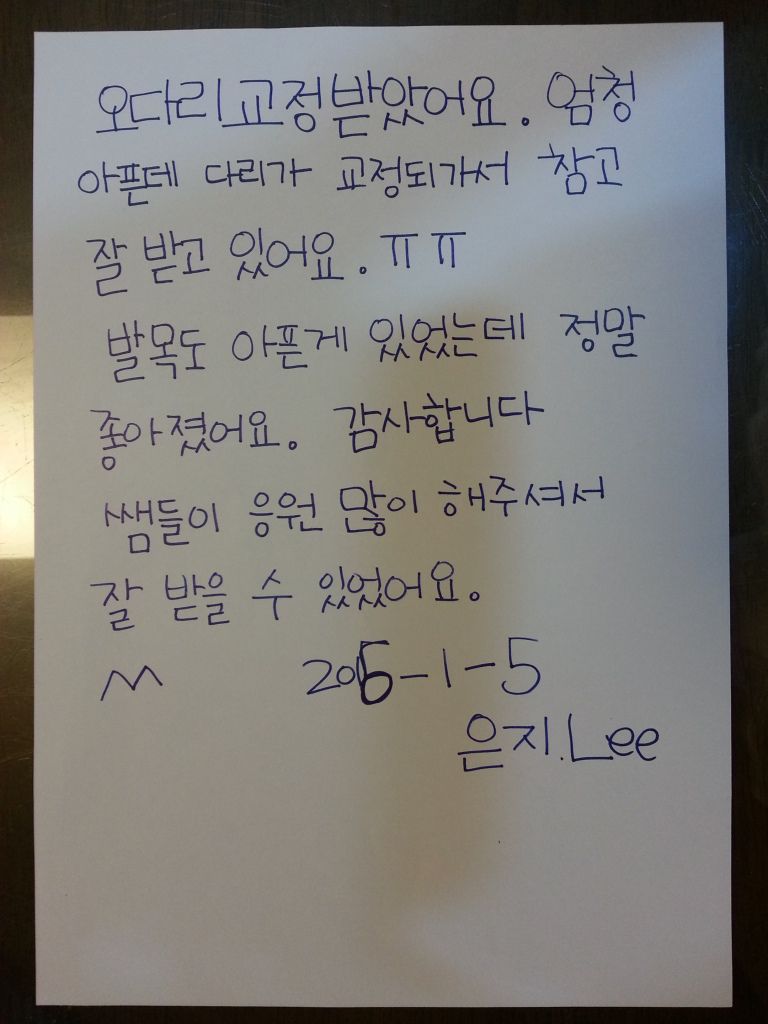 오다리교정받았어요. 엄청
아픈데 다리가 교정되가서 참고
잘 받고 있어요. ㅠㅠ
발목도 아픈게 있었는데 정말
좋아졌어요. 감사합니다
쌤들이 응원 많이 해주셔서
잘 받을 수 있었어요.
은지.Lee